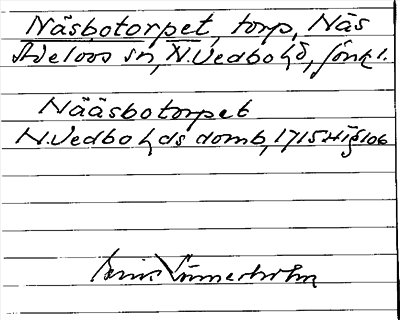 Näsbotorpet, torp, Näs
Adelövs sn, N. Vedbo hd, Jönk l.
Nääsbotorpet
N. Vedbo hds domb, 1715 HT § 106